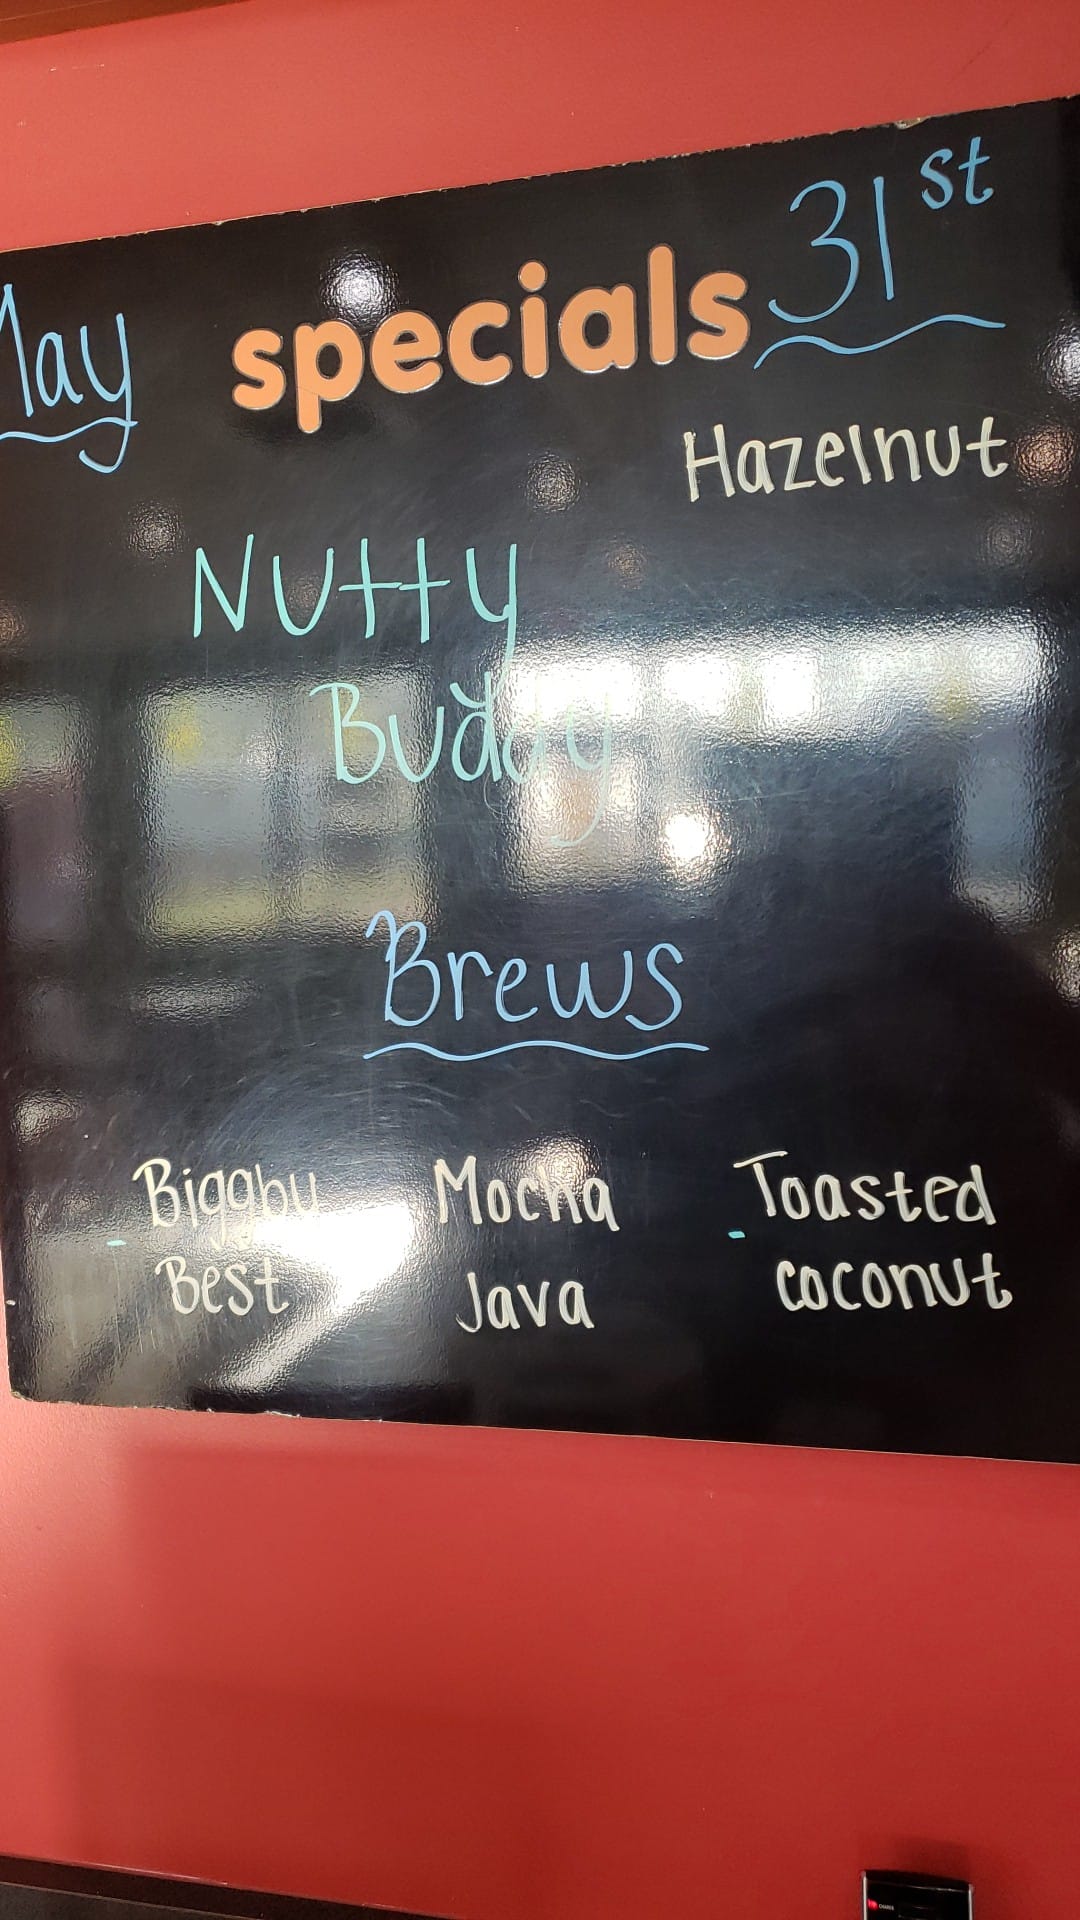 May specials 31st
Hazelnut
Nutty
Buddy
Brews
Biggby Mocha Toasted
Best Java coconut